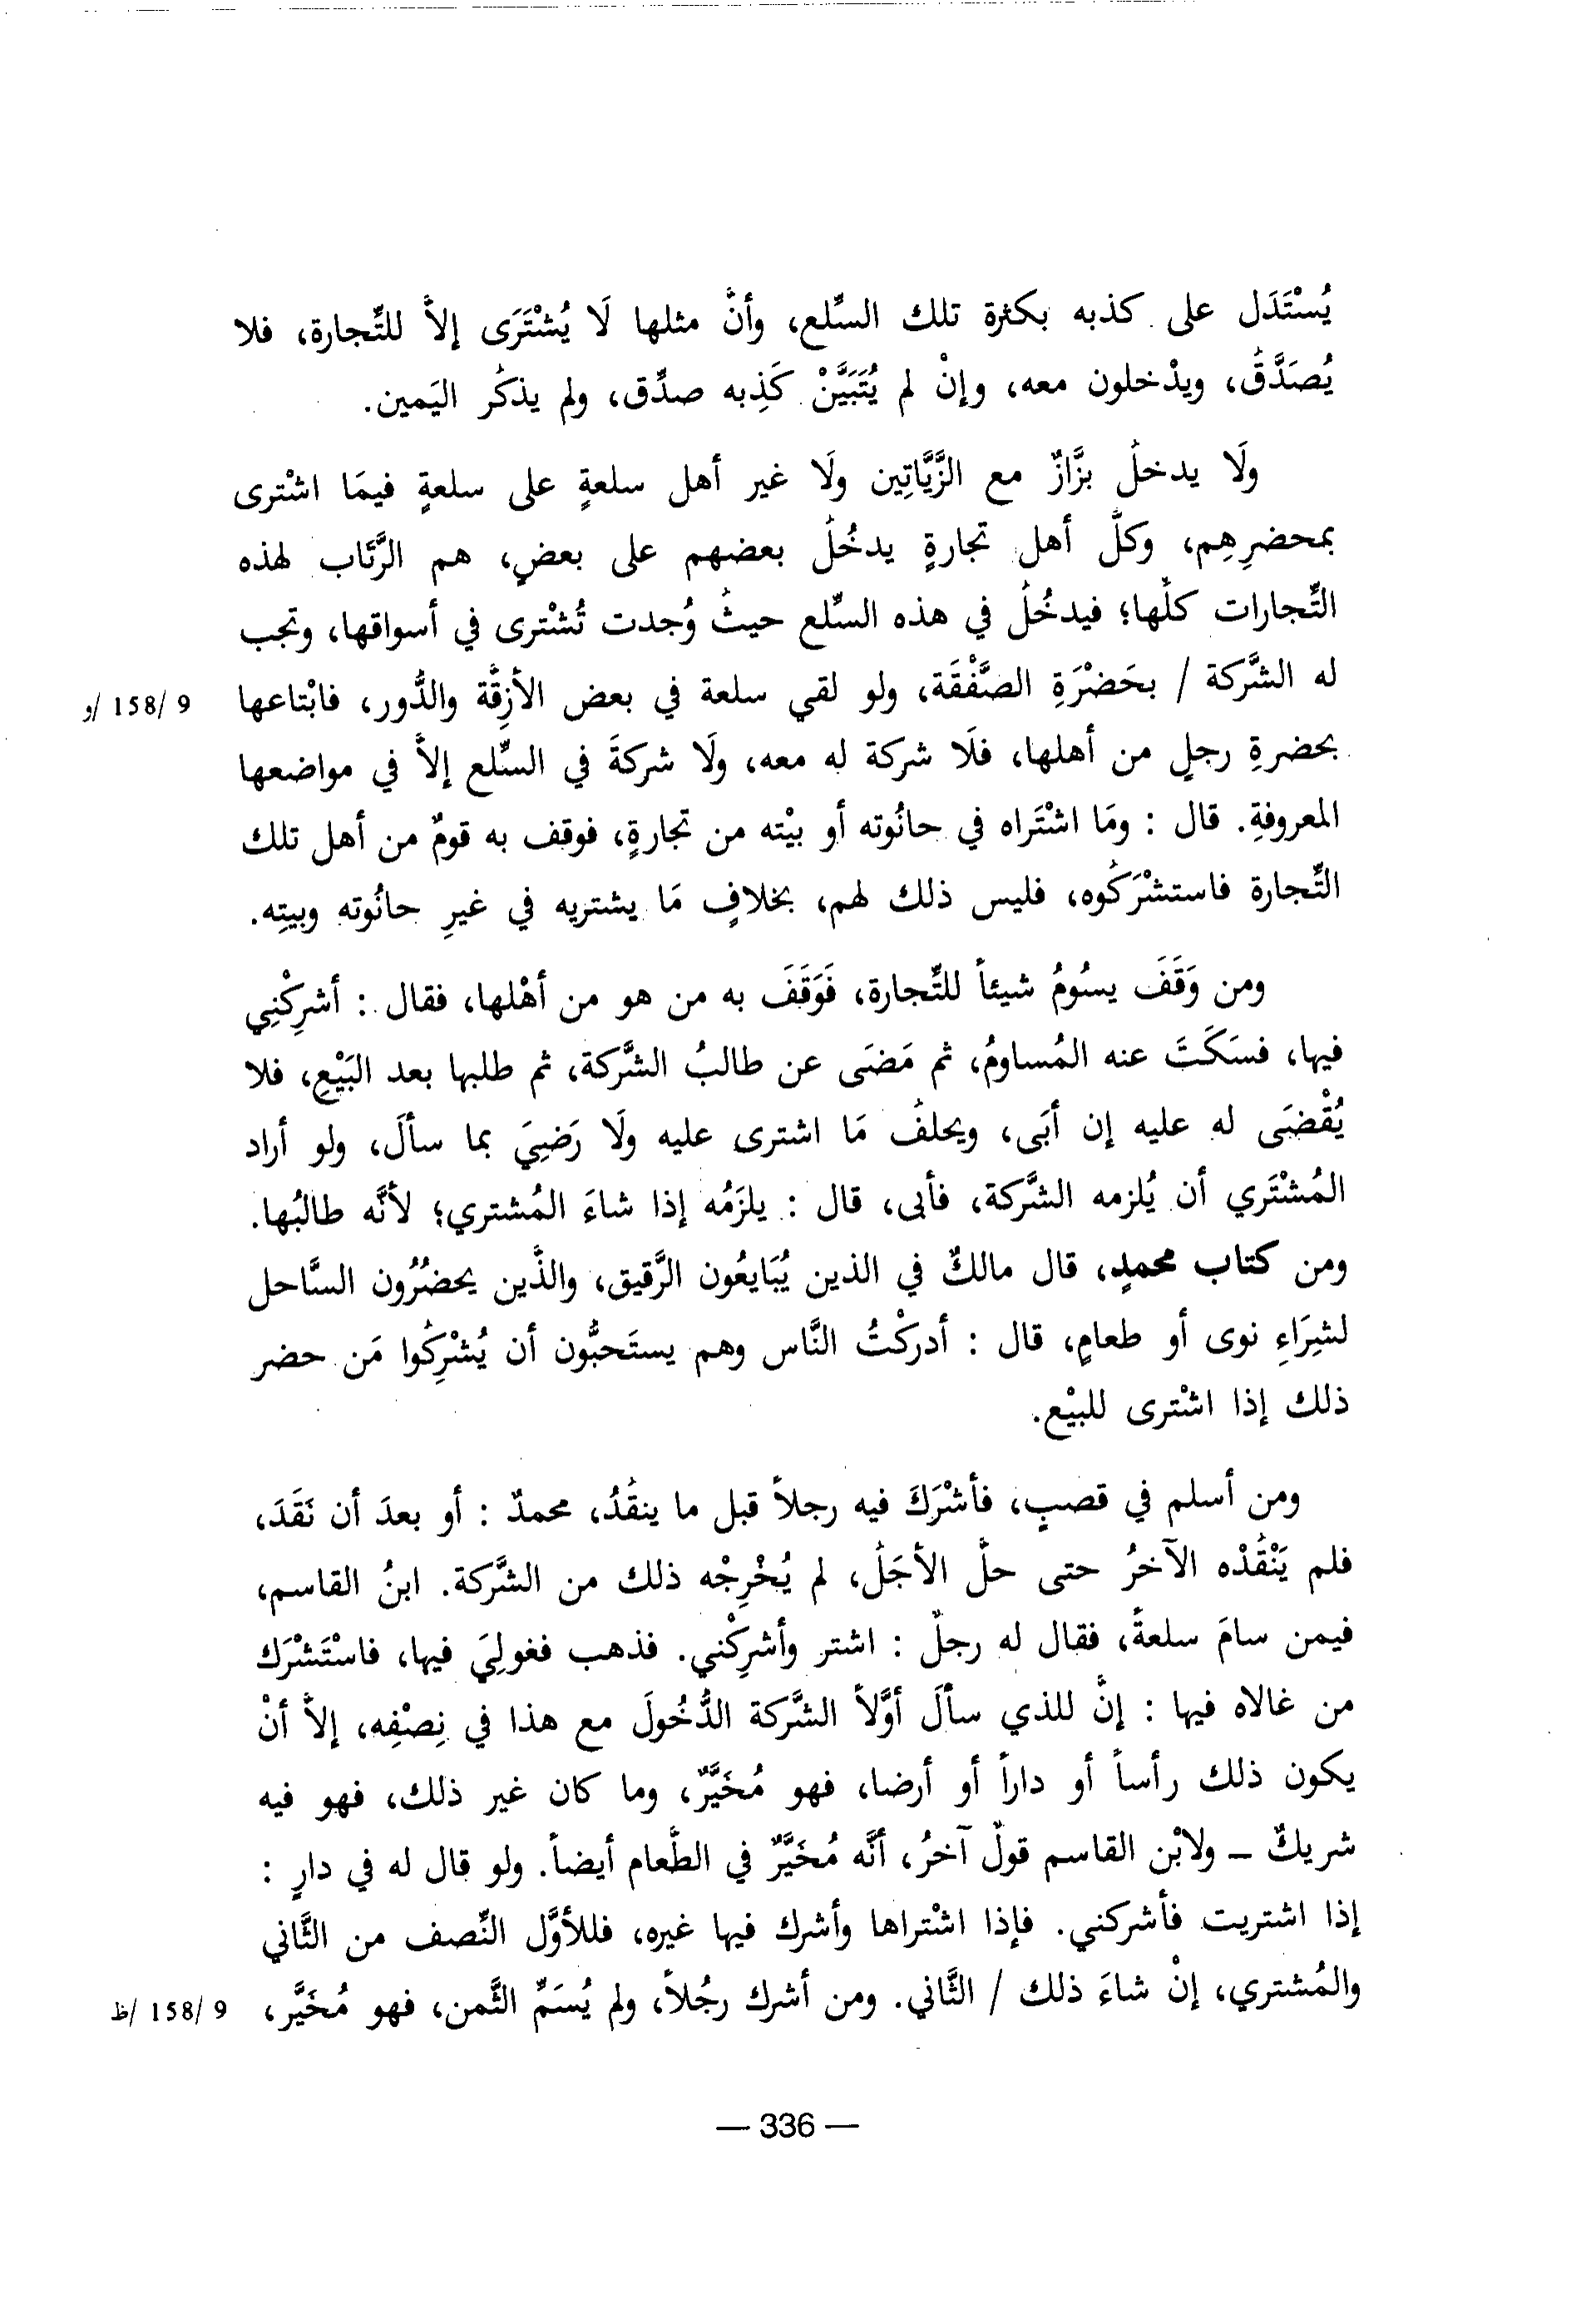 يُسْتَدَل على كذبه بكثرة تلك السِّلع، وأنَّ مثلها لَا يُشْتَرَى إلاَّ للتِّجارة، فلا
يُصَدَّقُ، ويدْخلون معه، وإنْ لم يُتَبَيَّنْ كَذِبه صدِّق، ولم يذكُر اليَمين.
ولَا يدخلُ بزَّازٌ مع الزَّيَّاتِين ولَا غير أهل سلعةٍ على سلعةٍ فيمَا اشْترى
بمحضرِهِم، وكلُّ أهل تجارةٍ يدخُلُ بعضهم على بعضٍ، هم الرَّتَاب لهذه
التِّجارات كلِّها؛ فيدخُلُ في هذه السِّلع حيثُ وُجدت تُشْترى في أسواقها، وتجب
له الشَّركة / بحَضْرَةِ الصَّفْقَة، ولو لقي سلعة في بعض الأزِقَّة والدُّور، فابْتاعها 9 /158 /و
بحضرةِ رجلٍ من أهلها، فلَا شركة له معه، ولَا شركةَ في السِّلع إلاَّ في مواضعها
المعروفةِ. قال : ومَا اشْتَراه في حانُوته أو بيْته من تجارةٍ، فوقف به قومٌ من أهل تلك
التِّجارة فاستشْرَكُوه، فليس ذلك لهم، بخلافٍ مَا يشتريه في غيرِ حانُوته وبيتِه.
ومن وَقَفَ يسُومُ شيئاً للتِّجارة، فَوَقَفَ به من هو من أهْلها، فقال : أشرِكْنِي
فيها، فسَكَتَ عنه المُساومُ، ثم مَضَى عن طالبُ الشَّركة، ثم طلبها بعد البَيْعِ، فلا
يُقْضَى له عليه إن أبَى، ويحلفُ مَا اشترى عليه ولَا رَضِيَ بما سألَ، ولو أراد
المُشْتَري أن يُلزمه الشَّركة، فأبى، قال : يلزَمُه إذا شاءَ المُشتري؛ لأنَّه طالبُها.
ومن كتاب محمدٍ، قال مالكٌ في الذين يُبَايعُون الرَّقيق، والذَّين يحضُرُون السَّاحل
لشِرَاءِ نوى أو طعامٍ، قال : أدركْتُ النَّاس وهم يستَحبُّون أن يُشْرِكُوا مَن حضر
ذلك إذا اشْترى للبيْع.
ومن أسلم في قصبٍ، فأشْرَكَ فيه رجلاً قبل ما ينقُدُ، محمدٌ : أو بعدَ أن نَقَدَ،
فلم يَنْقُدْه الآخرُ حتى حلَّ الأجَلُ، لم يُخْرِجْه ذلك من الشَّركة. ابنُ القاسم،
فيمن سامَ سلعةً، فقال له رجلٌ : اشتر وأشرِكْني. فذهب فغولِيَ فيها، فاسْتَشْرَك
من غالاه فيها : إنَّ للذي سألَ أوَّلاً الشَّركة الدُّخُولَ مع هذا في نِصْفِه، إلاَّ أنْ
يكون ذلك رأساً أو داراً أو أرضا، فهو مُخَيَّرٌ، وما كان غير ذلك، فهو فيه
شريكٌ – ولابْن القاسم قولٌ آخرُ، أنَّه مُخَيَّرٌ في الطَّعام أيضاً. ولو قال له في دارٍ :
إذا اشتريت فأشركني. فإذا اشْتراها وأشرك فيها غيره، فللأوَّل النِّصف من الثَّاني
والمُشتري، إنْ شاءَ ذلك / الثَّاني. ومن أشرك رجُلاً، ولم يُسَمِّ الثَّمن، فهو مُخَيَّر، 9 /158 /ظ
— 336 —